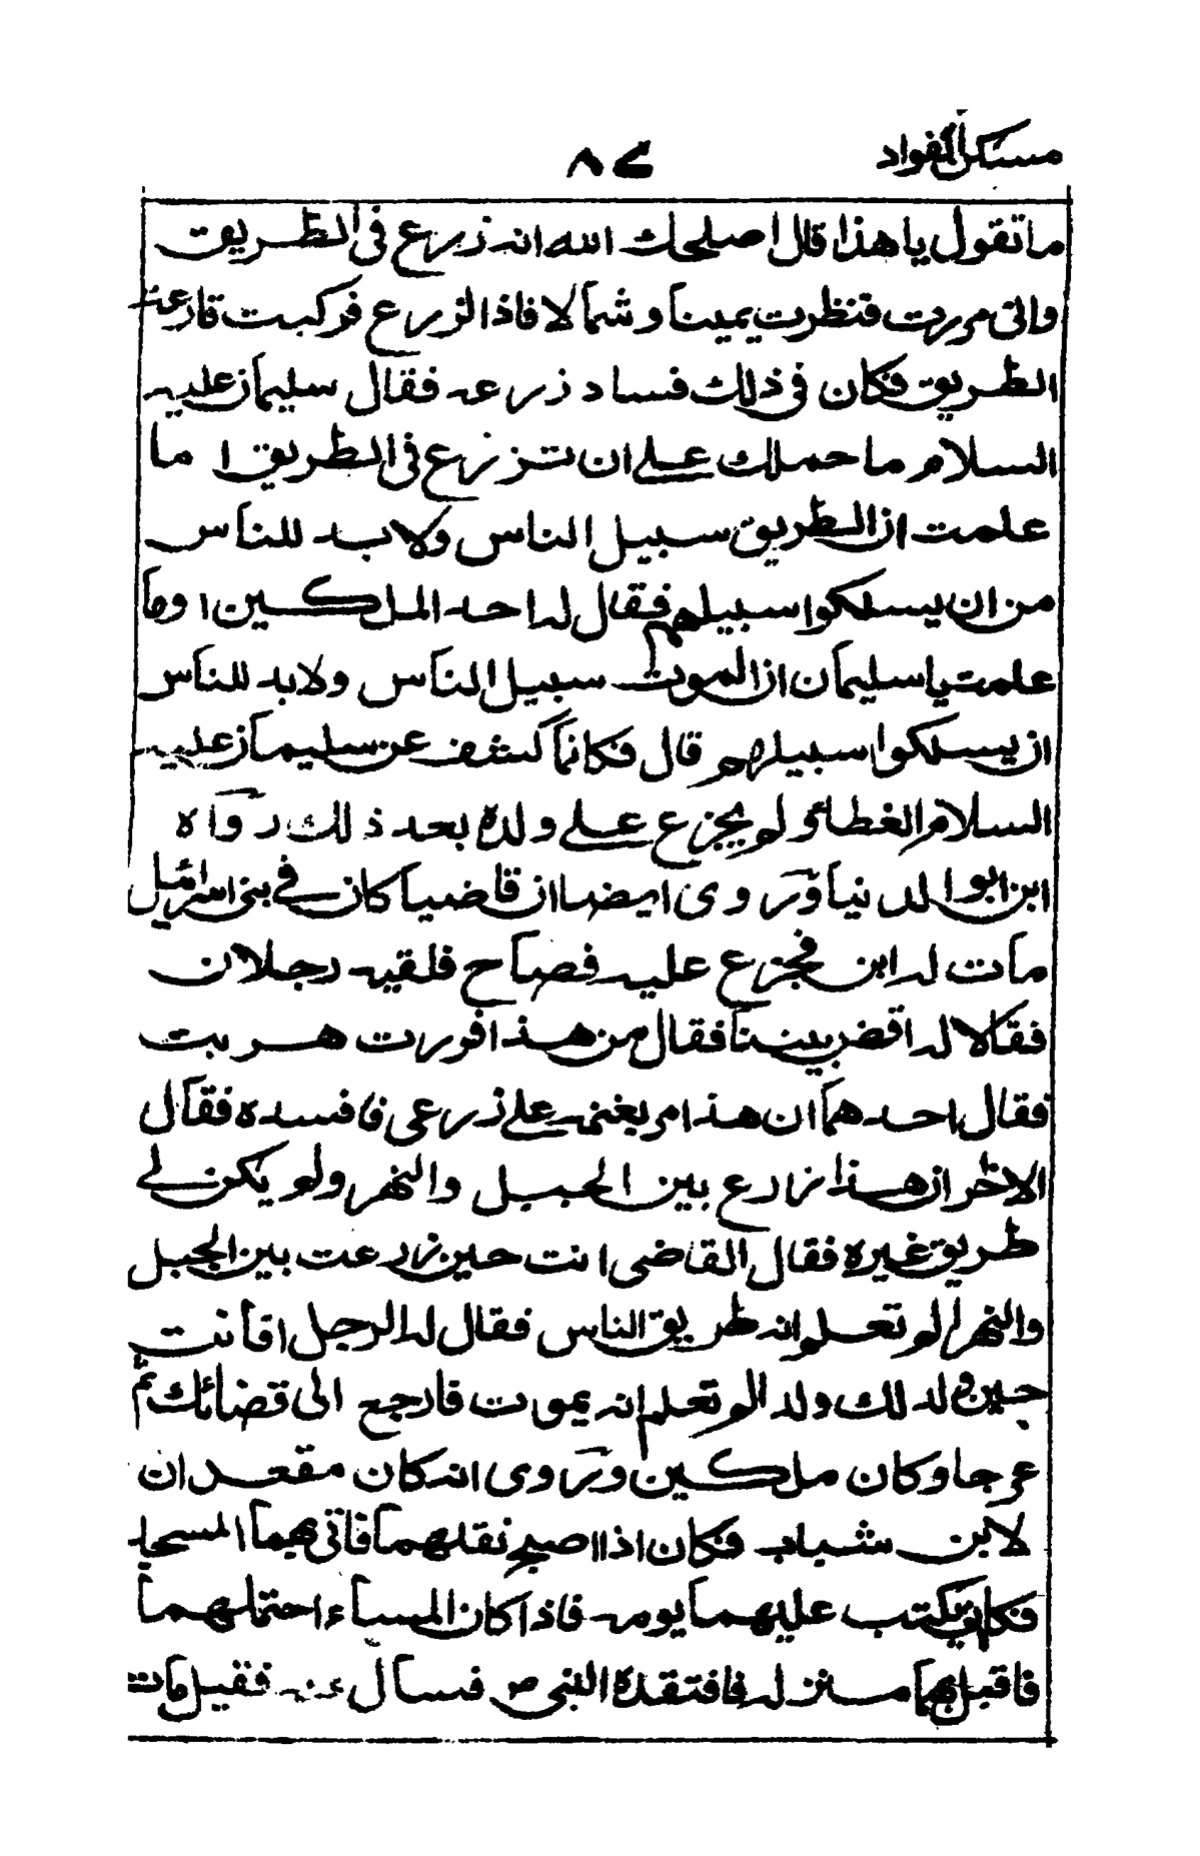 مسكن الفواد
٨٤
ما تقول يا هذا قال اصلحك الله انه زرع في الطريق
واني مررت فنظرت يمينا وشمالا فاذا الزرع فركبت قارعة
الطريق فكان في ذلك فساد زرعه فقال سليمان عليه
السلام ما حملك على ان تزرع في الطريق اما
علمت ان الطريق سبيل الناس ولا بد للناس
من ان يسلكوا سبيلهم فقال له احد الملكين اوما
علمت يا سليمان ان الموت سبيل الناس ولا بد للناس
ان يسلكوا سبيلهم قال فكانما كشف عن سليمان عليه
السلام الغطاء ولم يجزع على ولده بعد ذلك رواه
ابن ابو الدنيا وروى ايضا ان قاضيا كان في بني اسرائيل
مات له ابن فجزع عليه فصاح فلقيه رجلان
فقالا له اقض بيننا فقال من هذا فررت هربت
فقال احدهما ان هذا مر بغنمه على زرعي فافسده فقال
الاخر ان هذا زرع بين الجبل والنهر ولم يكن لي
طريق غيره فقال القاضي انت حين زرعت بين الجبل
والنهر الم تعلم انه طريق الناس فقال له الرجل افانت
حين ولد لك ولد الم تعلم انه يموت فارجع الى قضائك ثم
عرجا وكان ملكين وروى انه كان مقعدان
لابن شباب فكان اذا اصبح نقلهما فاتى بهما المسجد
فكان يكتب عليهما يومه فاذا كان المساء احتملهما
فاقبل بهما منزله فافتقده النبي ص فسال عنه فقيل مات